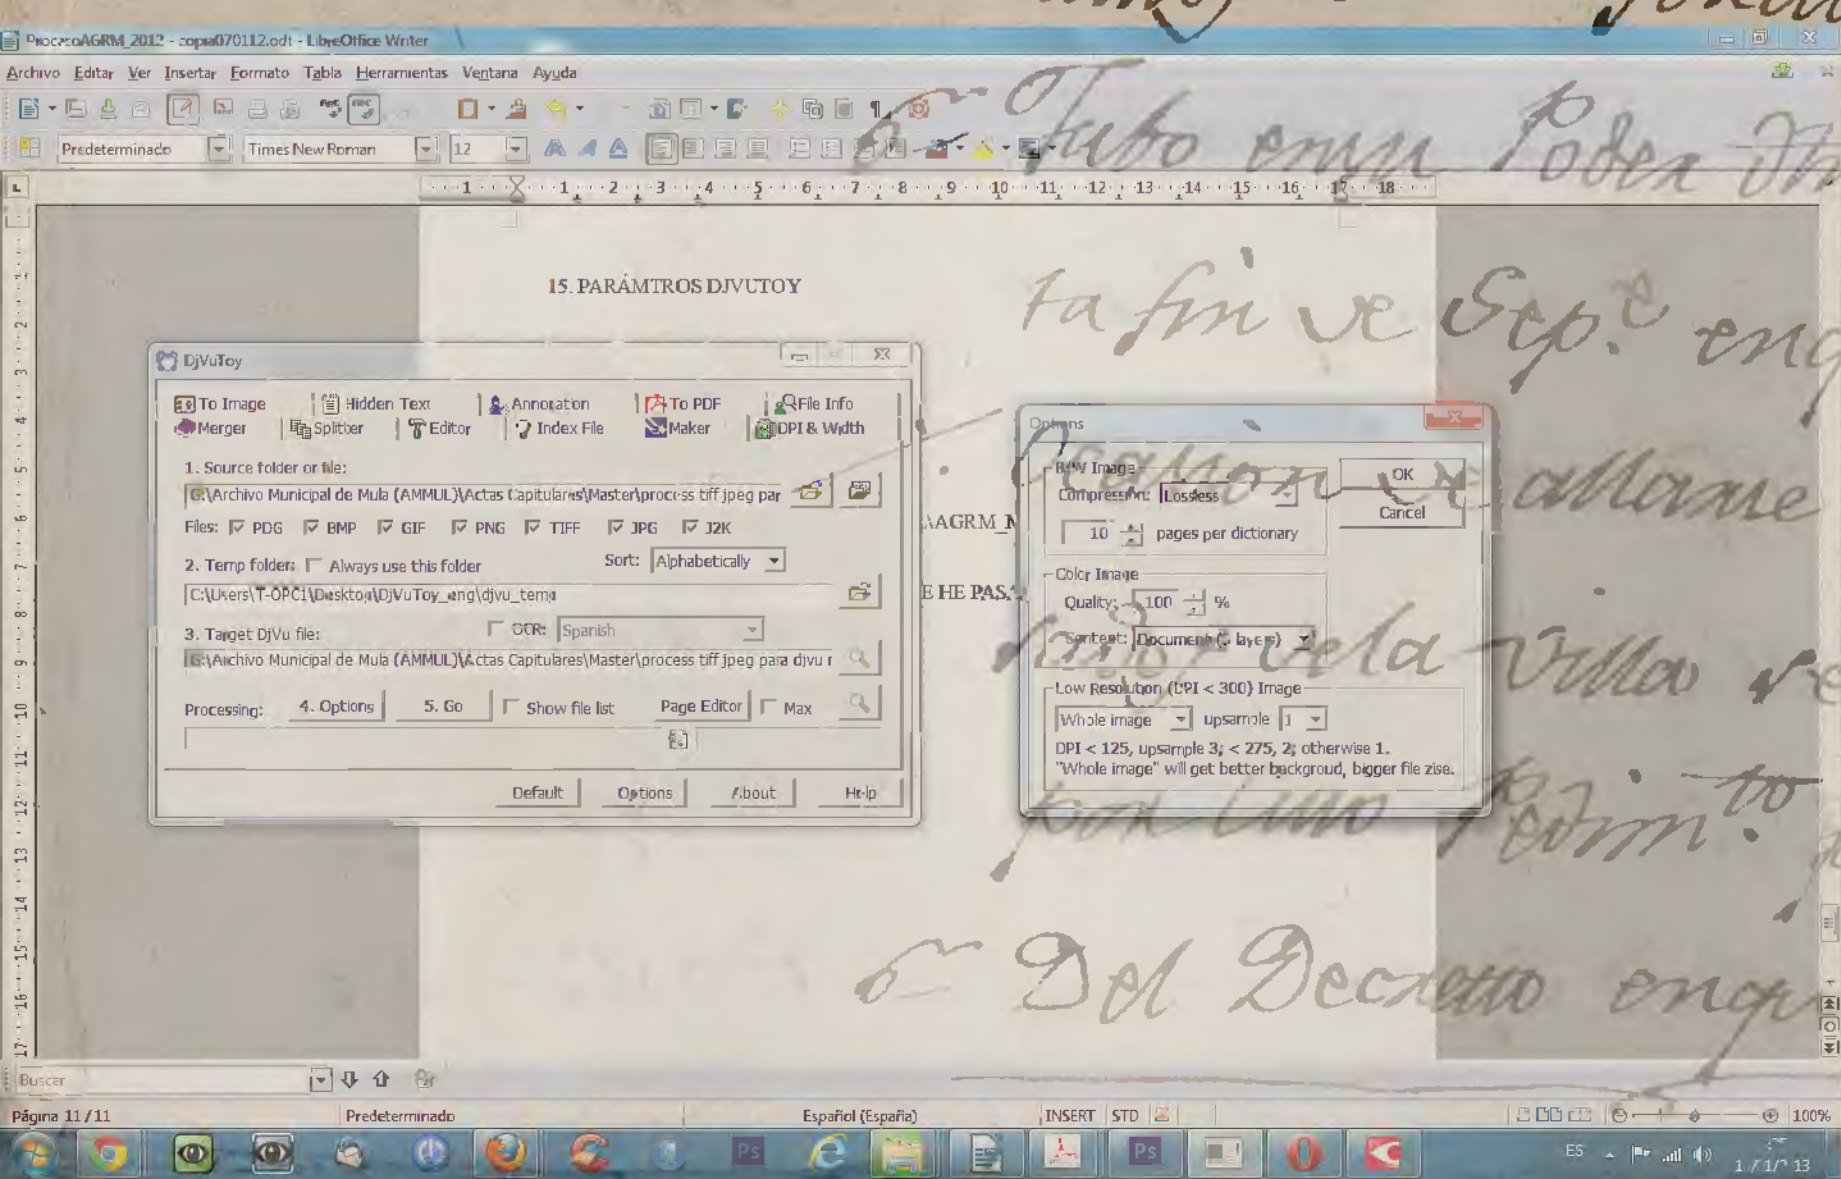 ProcesoAGRM_2012 - copia070112.odt - LibreOffice Writer
Archivo Editar Ver Insertar Formato Tabla Herramientas Ventana Ayuda
Predeterminado Times New Roman 12
1 1 2 3 4 5 6 7 8 9 10 11 12 13 14 15 16 17 18
15. PARÁMTROS DJVUTOY
DjVuToy
To Image Hidden Text Annotation To PDF File Info
Merger Splitter Editor Index File Maker DPI & Width
1. Source folder or file:
G:\Archivo Municipal de Mula (AMMUL)\Actas Capitulares\Master\process tiff jpeg par
Files: PDG BMP GIF PNG TIFF JPG J2K
2. Temp folder: Always use this folder Sort: Alphabetically
C:\Users\T-OPC1\Desktop\DjVuToy_eng\djvu_temp
3. Target DjVu file: OCR: Spanish
G:\Archivo Municipal de Mula (AMMUL)\Actas Capitulares\Master\process tiff jpeg para djvu r
Processing: 4. Options 5. Go Show file list Page Editor Max
Default Options About Help
AAGRM_M
E HE PAS
Options
B/W Image
Compression: Lossless
10 pages per dictionary
OK
Cancel
Color Image
Quality: 100 %
Content: Document (3 layers)
Low Resolution (DPI < 300) Image
Whole image upsample 1
DPI < 125, upsample 3; < 275, 2; otherwise 1.
"Whole image" will get better backgroud, bigger file zise.
Poder
ta fin de Sep.e enq
de la Villa
Pedim.to
Del Decretto enqu
Buscar
Página 11/11 Predeterminado Español (España) INSERT STD 100%
Ps Ps ES